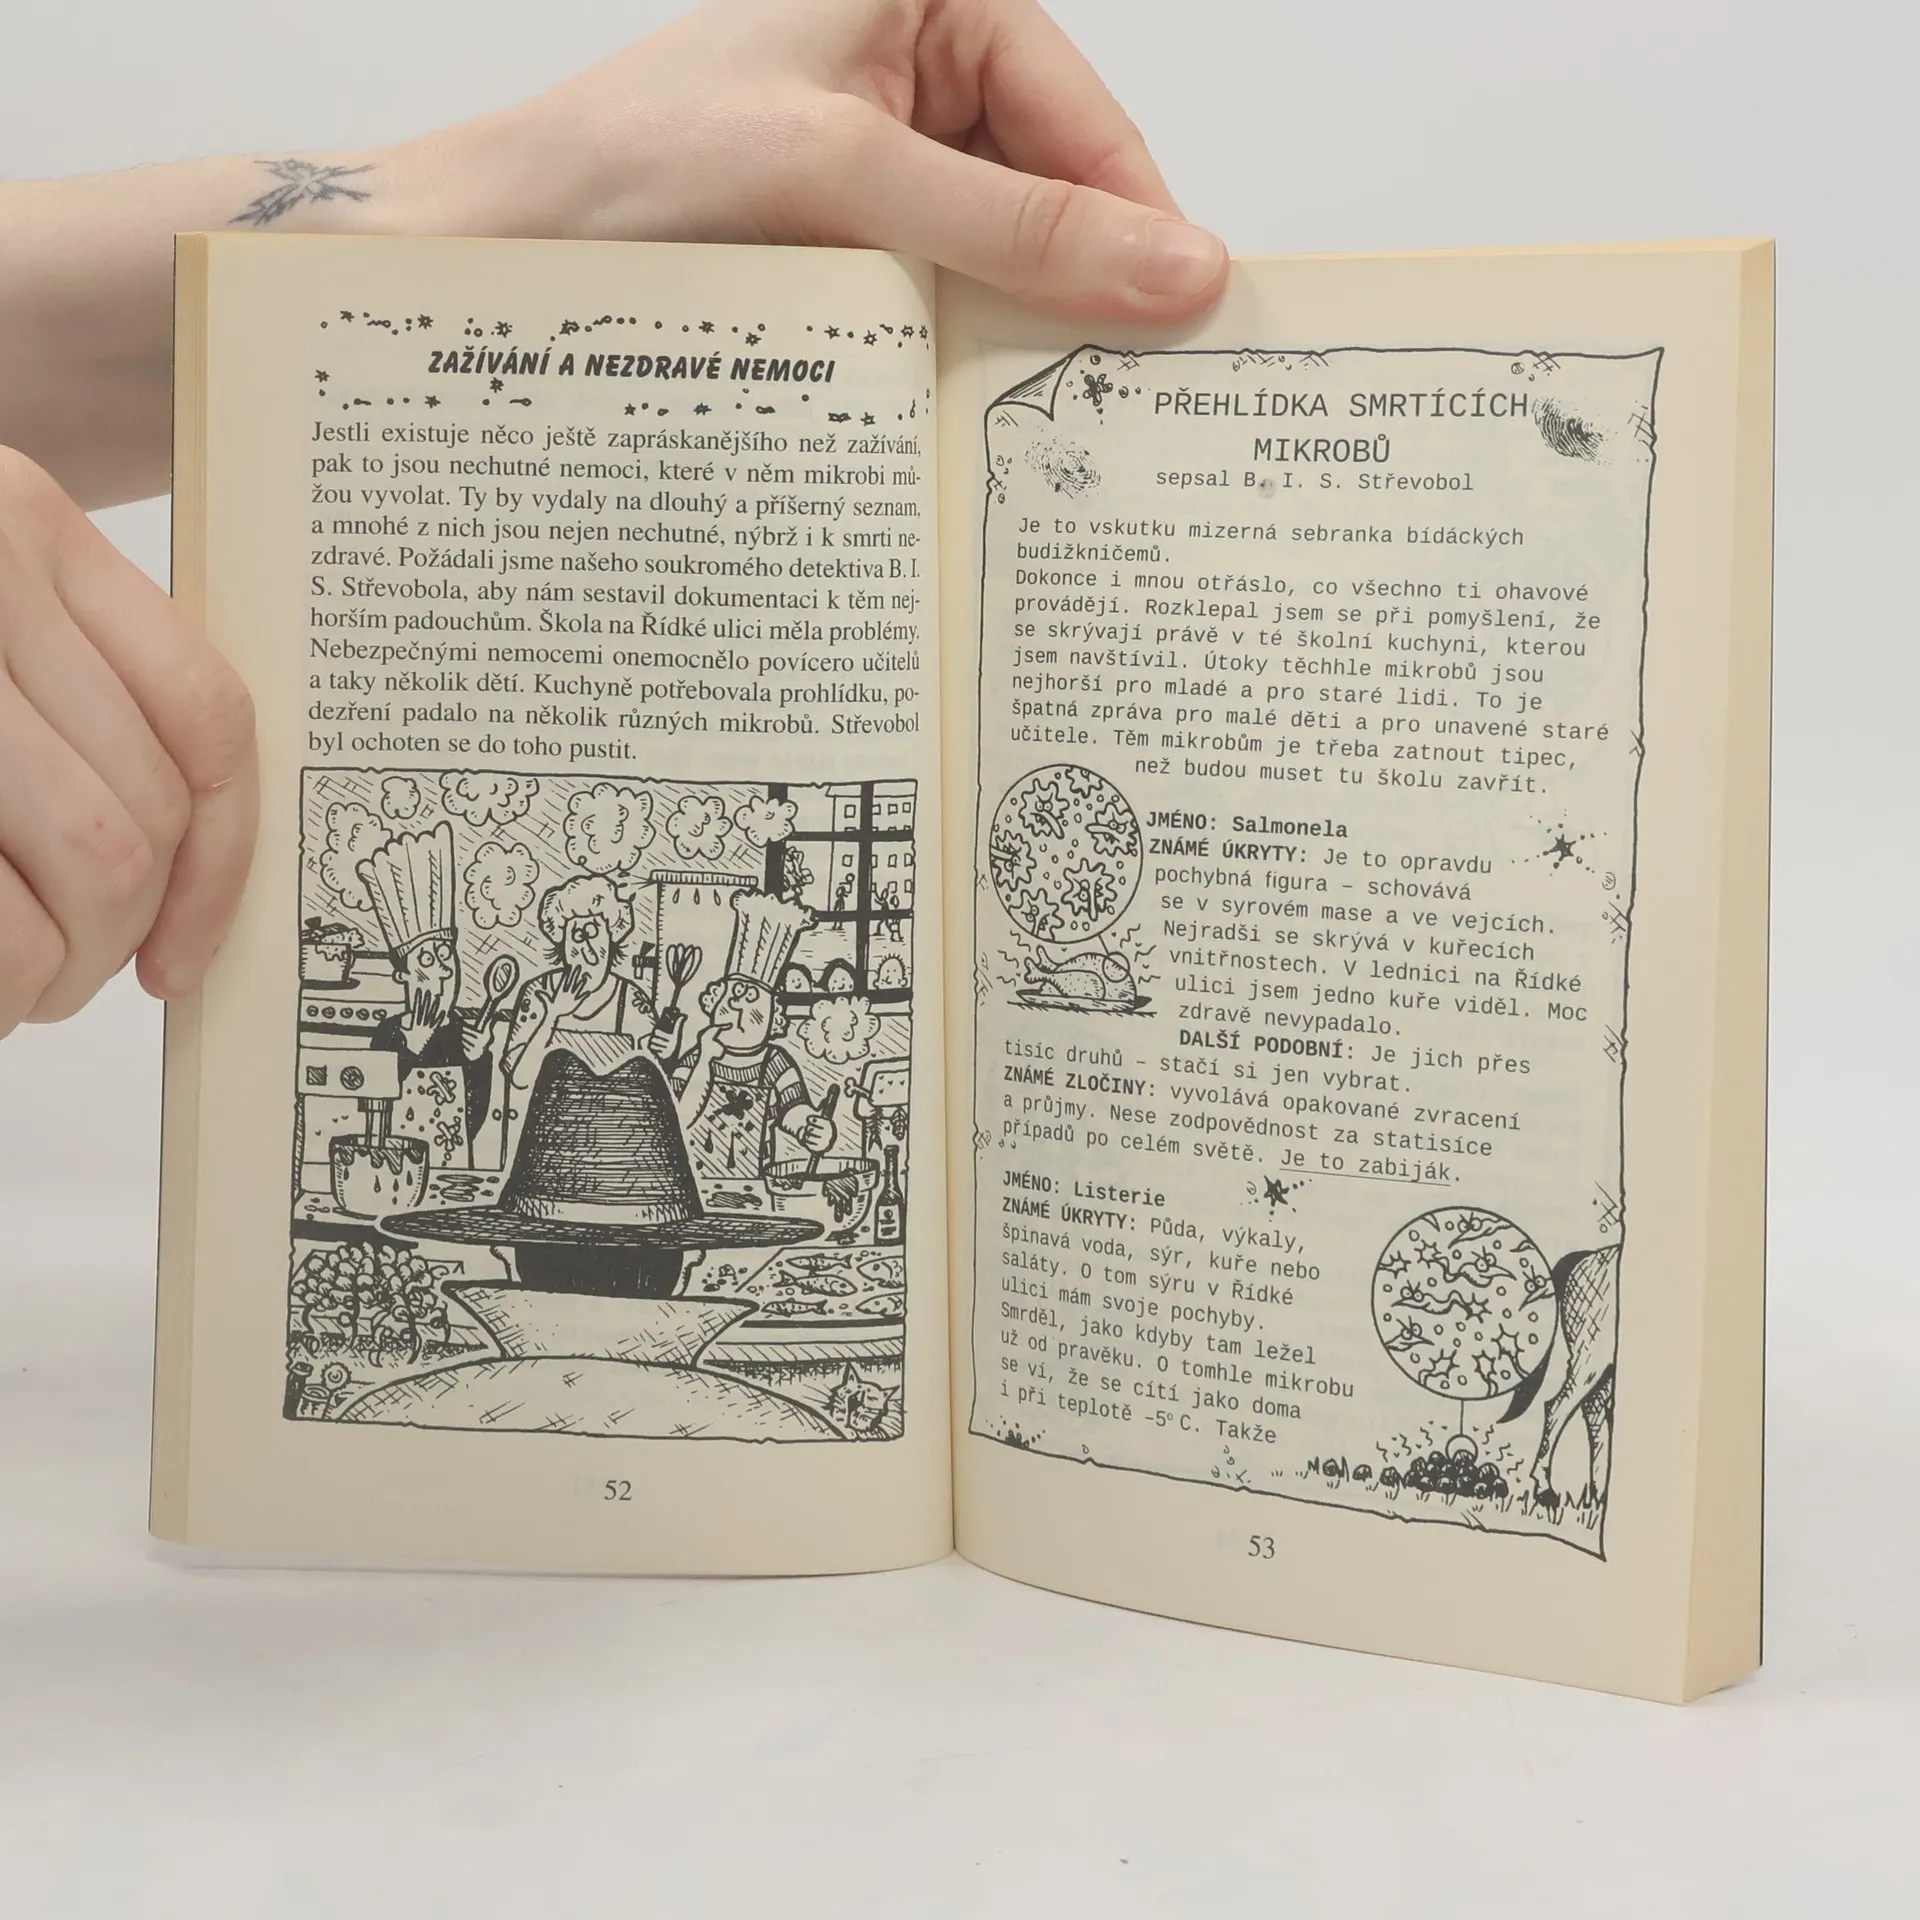 ZAŽÍVÁNÍ A NEZDRAVÉ NEMOCI
Jestli existuje něco ještě zapráskanějšího než zažívání,
pak to jsou nechutné nemoci, které v něm mikrobi mů-
žou vyvolat. Ty by vydaly na dlouhý a příšerný seznam,
a mnohé z nich jsou nejen nechutné, nýbrž i k smrti ne-
zdravé. Požádali jsme našeho soukromého detektiva B. I.
S. Střevobola, aby nám sestavil dokumentaci k těm nej-
horším padouchům. Škola na Řídké ulici měla problémy.
Nebezpečnými nemocemi onemocnělo povícero učitelů
a taky několik dětí. Kuchyně potřebovala prohlídku, po-
dezření padalo na několik různých mikrobů. Střevobol
byl ochoten se do toho pustit.
52
PŘEHLÍDKA SMRTÍCÍCH
MIKROBŮ
sepsal B. I. S. Střevobol
Je to vskutku mizerná sebranka bídáckých
budižkničemů.
Dokonce i mnou otřáslo, co všechno ti ohavové
provádějí. Rozklepal jsem se při pomyšlení, že
se skrývají právě v té školní kuchyni, kterou
jsem navštívil. Útoky těchhle mikrobů jsou
nejhorší pro mladé a pro staré lidi. To je
špatná zpráva pro malé děti a pro unavené staré
učitele. Těm mikrobům je třeba zatnout tipec,
než budou muset tu školu zavřít.
JMÉNO: Salmonela
ZNÁMÉ ÚKRYTY: Je to opravdu
pochybná figura – schovává
se v syrovém mase a ve vejcích.
Nejradši se skrývá v kuřecích
vnitřnostech. V lednici na Řídké
ulici jsem jedno kuře viděl. Moc
zdravě nevypadalo.
DALŠÍ PODOBNÍ: Je jich přes
tisíc druhů – stačí si jen vybrat.
ZNÁMÉ ZLOČINY: vyvolává opakované zvracení
a průjmy. Nese zodpovědnost za statisíce
případů po celém světě. Je to zabiják.
JMÉNO: Listerie
ZNÁMÉ ÚKRYTY: Půda, výkaly,
špinavá voda, sýr, kuře nebo
saláty. O tom sýru v Řídké
ulici mám svoje pochyby.
Smrděl, jako kdyby tam ležel
už od pravěku. O tomhle mikrobu
se ví, že se cítí jako doma
i při teplotě –5° C. Takže
53